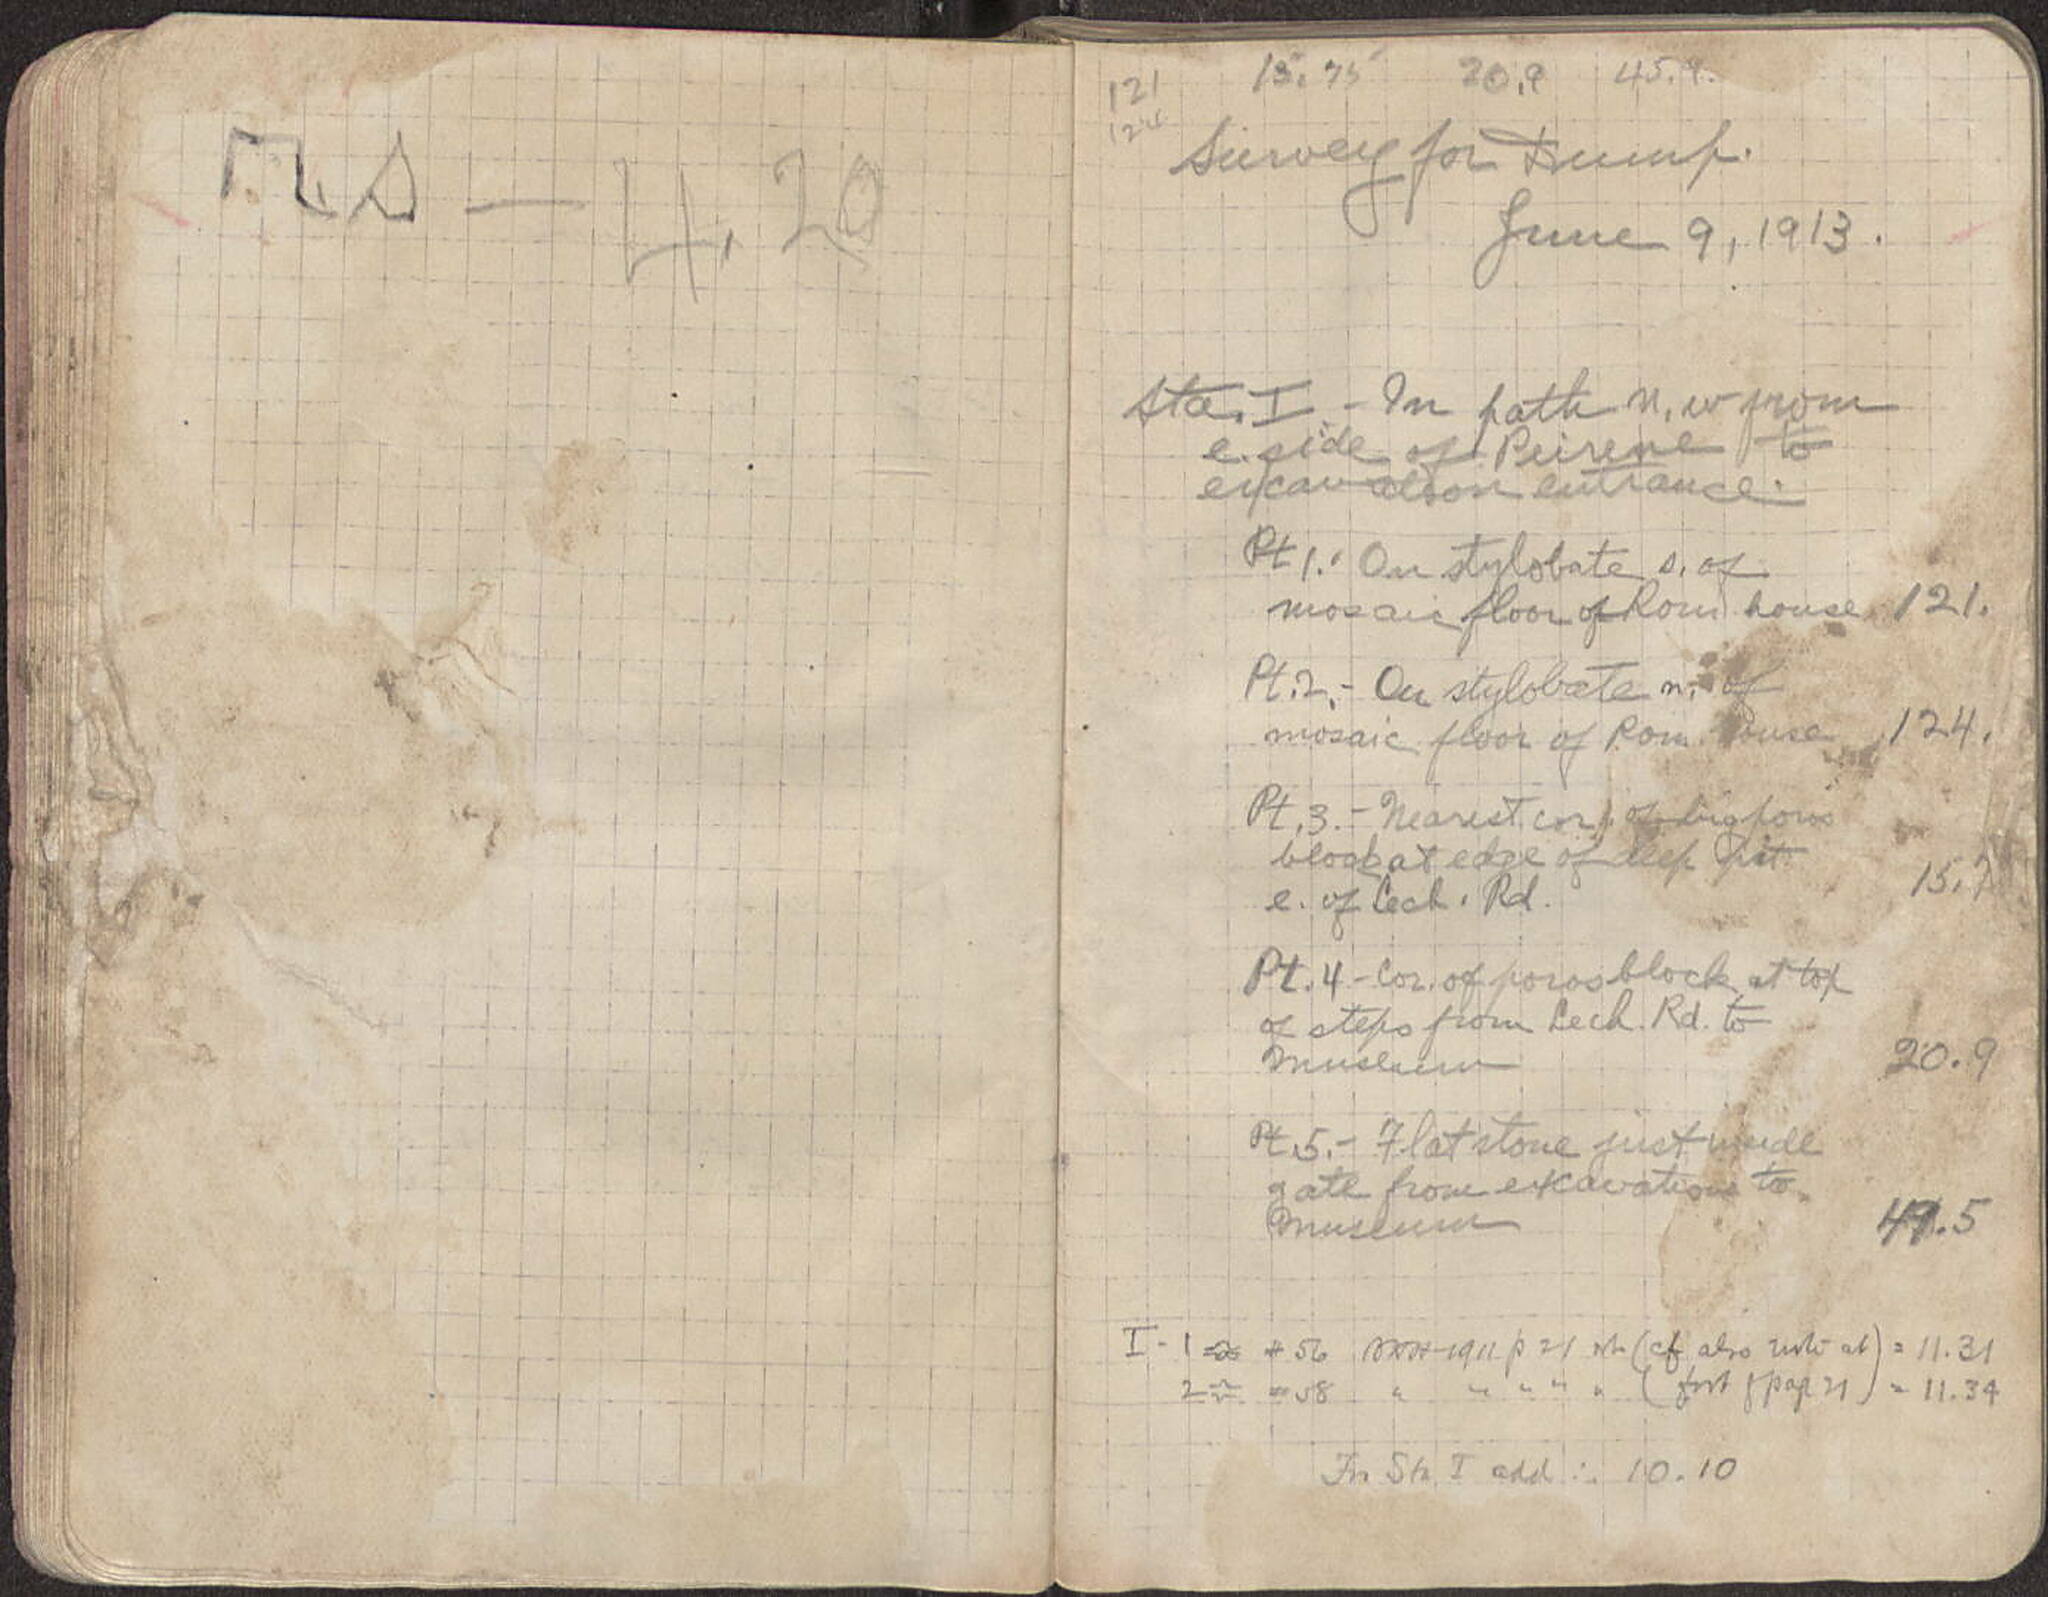 — 4.20
121 15.75 20.9 45.9.
124
Survey for Dump.
June 9, 1913.
Sta. I. - In path n.w from
e. side of Peirene to
excavation entrance.
Pt 1. - On stylobate s. of
mosaic floor of Rom house 121.
Pt. 2. - On stylobate n. of
mosaic floor of Rom. house 124.
Pt. 3. - Nearest cor. of big poros
block at edge of deep pit
e. of Lech. Rd. 15.7
Pt. 4 - Cor. of poros block at top
of steps from Lech. Rd. to
Museum 20.9
Pt. 5. - Flat stone just inside
gate from excavations to
Museum 41.5
I - 1 = # 56 1911 p 21 (cf also note at) = 11.31
2 = = 58 " " " " " ( foot of page 21 ) = 11.34
For Sta I add : 10.10